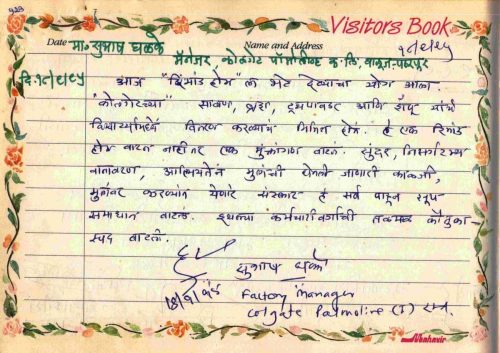 Visitors Book
Date मा. सुभाष घळके Name and Address
मॅनेजर, कोलगेट पॉमोलीव्ह कं. लि. वाळूज-पंढरपूर
आज "रिमांड होम" ला भेट देण्याचा योग आला
"कोलगेटच्या" साबण, ब्रश, टूथपावडर आणि शँपू यांचे
विद्यार्थ्यांमध्ये वितरण करण्याचं निमित्त होतं. हे एक रिमांड
होम वाटत नाही तर एक मुक्तांगण वाटलं. सुंदर, निसर्गरम्य
वातावरण, आत्मियतेनं मुलांची घेतली जाणारी काळजी,
मुलांवर करण्यात येणारे संस्कार हे सर्व पाहून खूप
समाधान वाटलं. इथल्या कर्मचारीवर्गाची तळमळ कौतुका-
स्पद वाटली.
सुभाष घळके
Factory Manager
Colgate Palmolive (I)
Mahavir